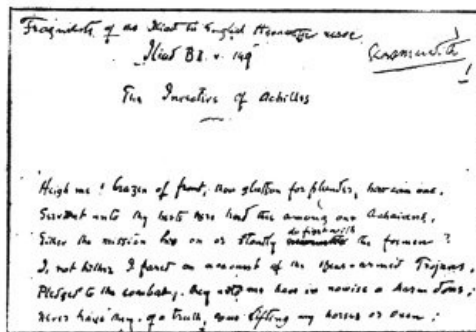 Fragments of an Iliad in English Hexameter verse
Iliad B I. v. 149
The Invective of Achilles
Heigh me! brazen of front, thou glutton for plunder, how can one,
Servant unto thy hests here heed thee among our Achaians,
Either the mission hie on or stoutly do fight with the foemen?
I, not hither I fared on account of the spear-armed Trojans,
Pledged to the combat; they unto me have in nowise a harm done;
Never have they, of a truth, come lifting my horses or oxen;